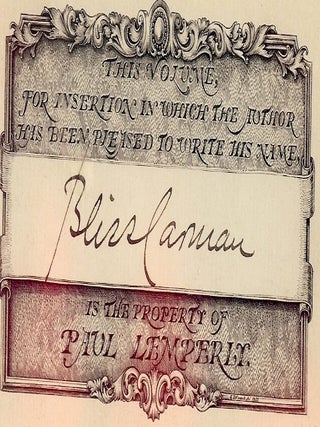 THIS VOLUME,
FOR INSERTION IN WHICH THE AUTHOR
HAS BEEN PLEASED TO WRITE HIS NAME,
Bliss Carman
IS THE PROPERTY OF
PAUL LEMPERLY.